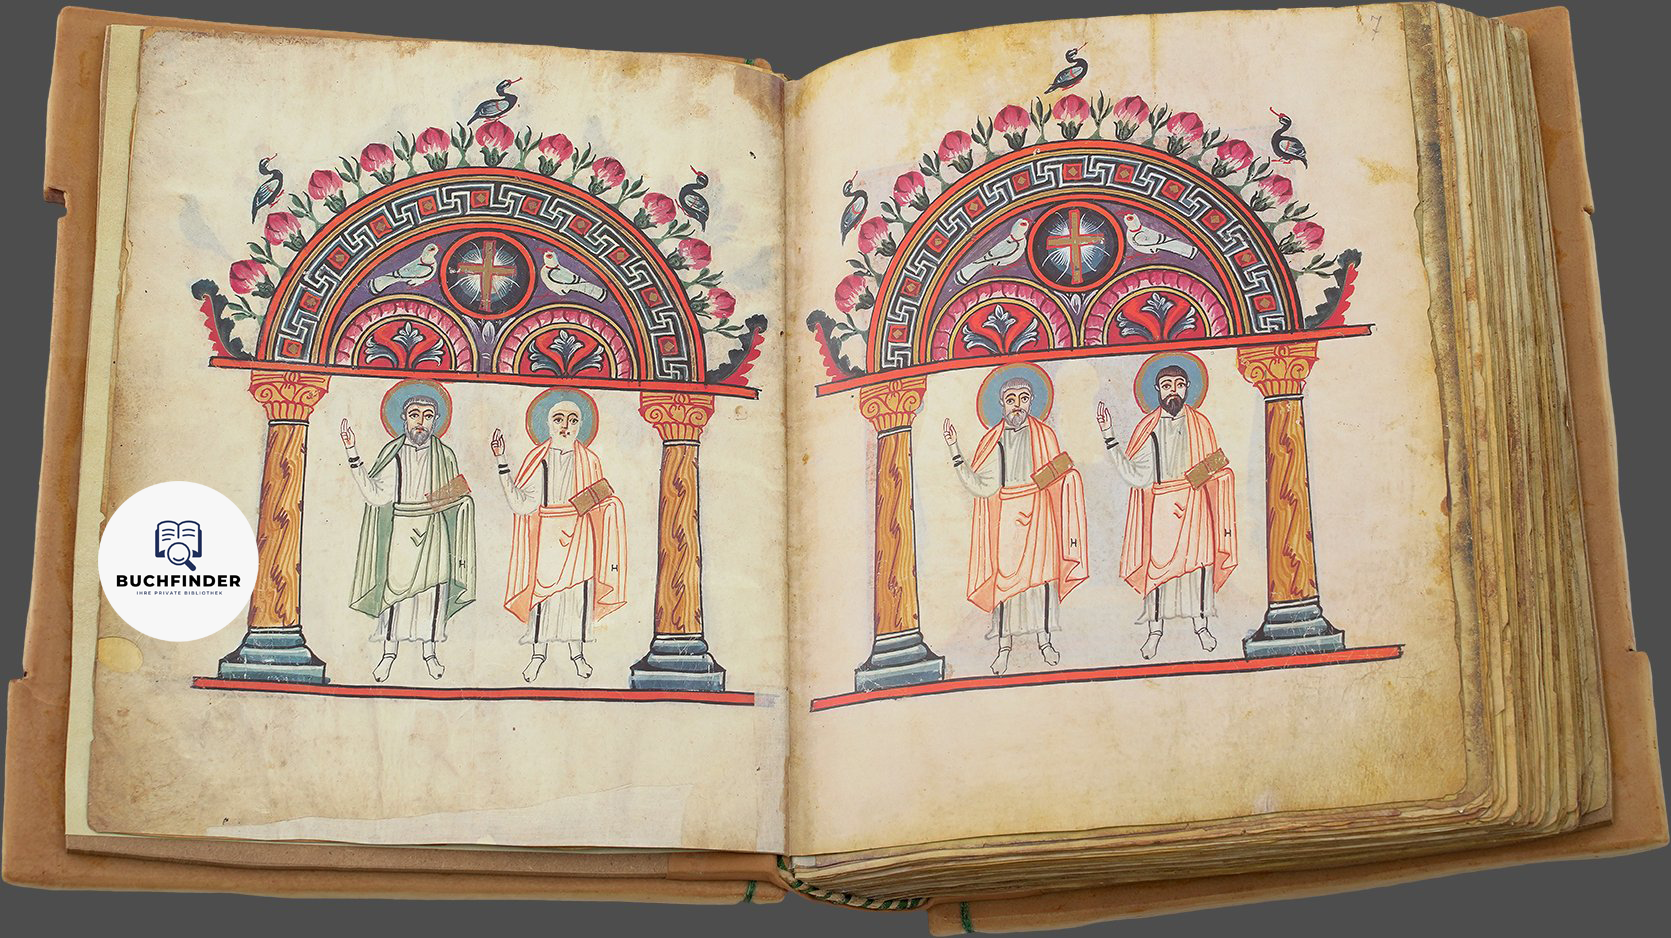 7
H
H
H
H
BUCHFINDER
IHRE PRIVATE BIBLIOTHEK